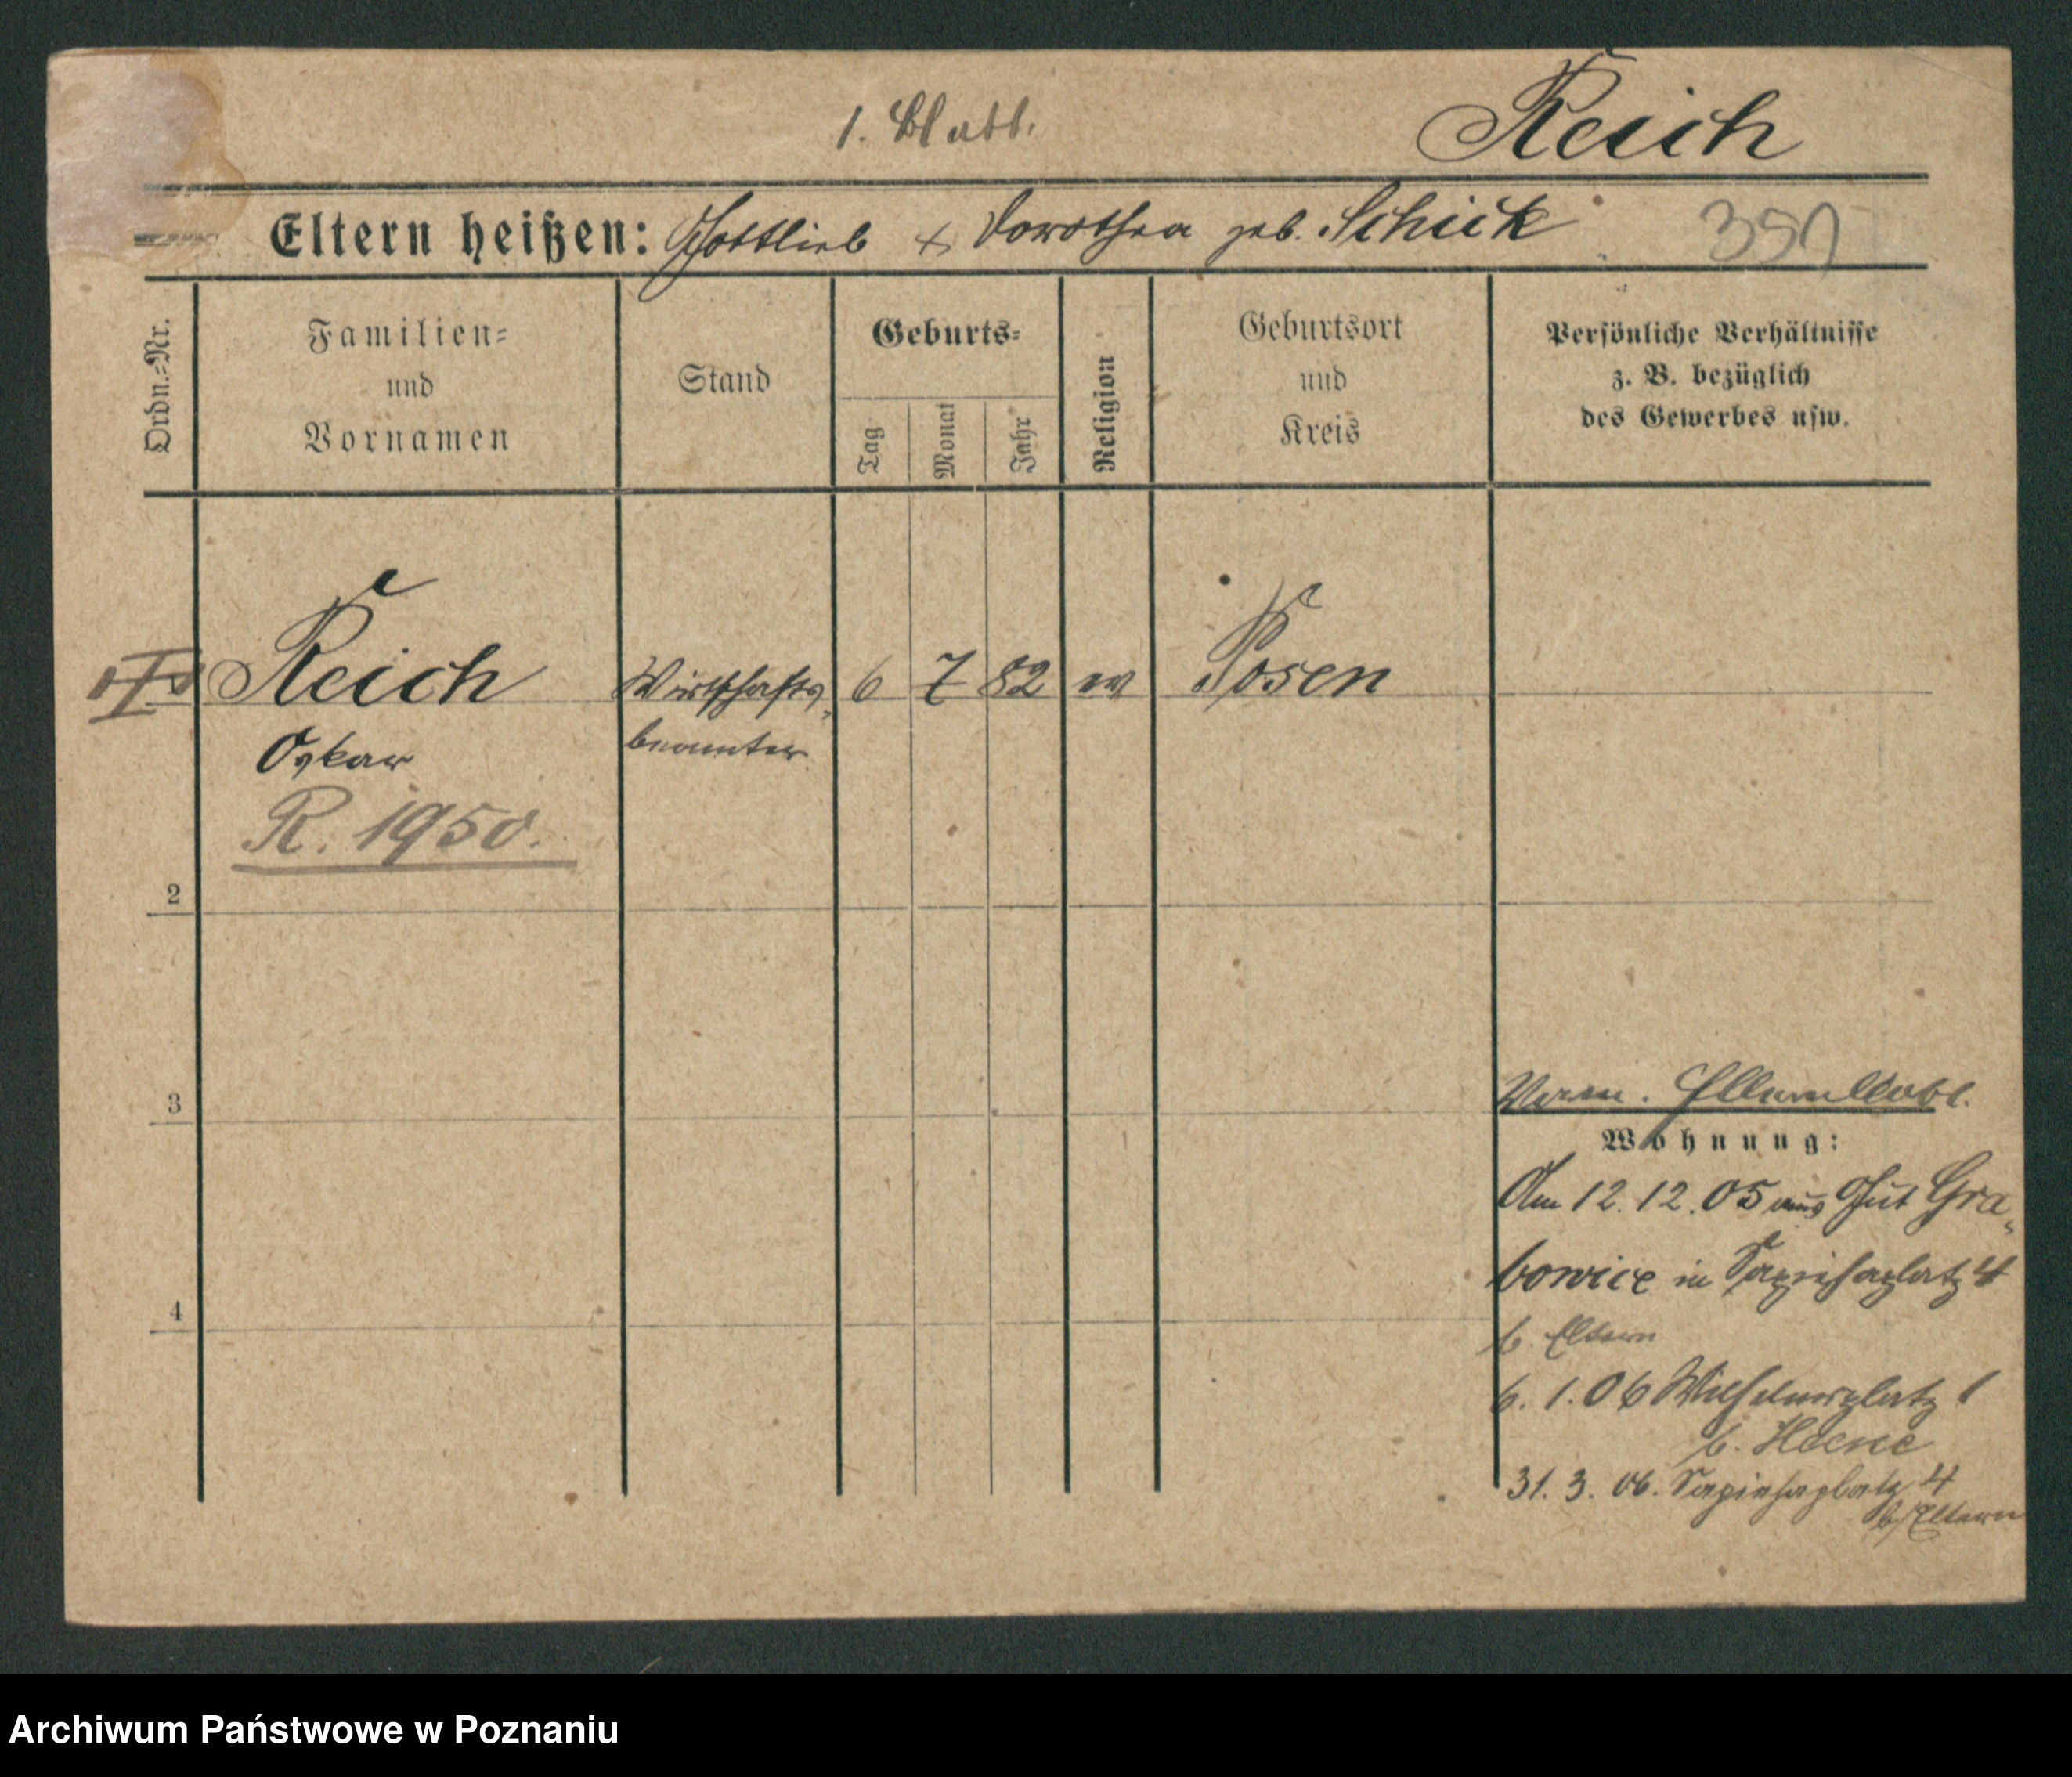 1. Blatt.
Reich
Eltern heißen: Gottlieb & Dorothea geb. Schick
351
Ordn.-Nr.
Familien-
und
Vornamen
Stand
Geburts-
Tag
Monat
Jahr
Religion
Geburtsort
und
Kreis
Persönliche Verhältnisse
z. B. bezüglich
des Gewerbes usw.
I Reich Wirtschafts- 6 7 82 ev Posen
Oskar beamter
R. 1950.
2
3
Wohnung:
Am 12.12.05 aus Gut Gra-
bowice in Sapiehaplatz 4
4
b. Eltern
6. 1. 06 Wilhelmsplatz 1
b. Heene
31. 3. 06. Sapiehaplatz 4
b/Eltern
Archiwum Państwowe w Poznaniu